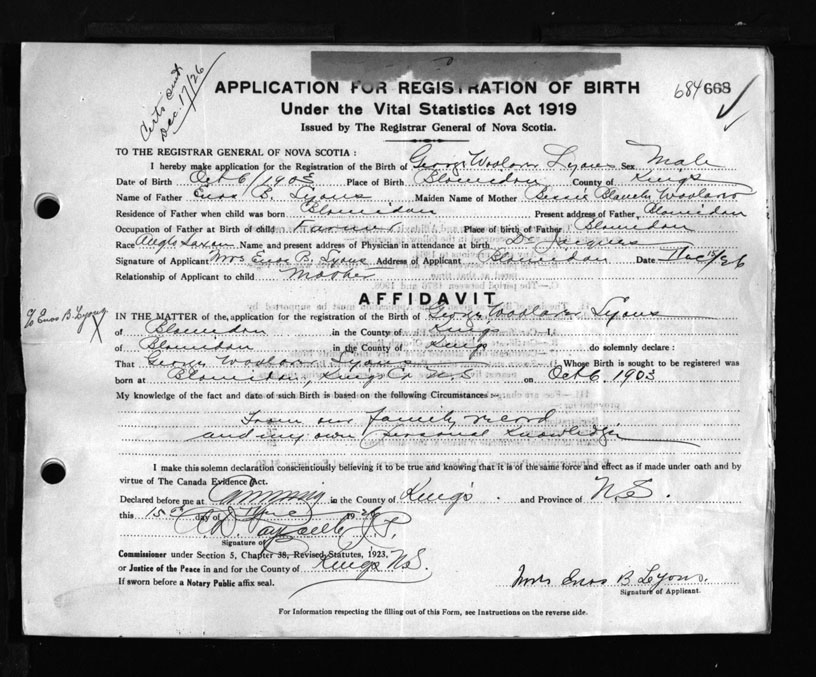 Certs sent
Dec. 17/26
APPLICATION FOR REGISTRATION OF BIRTH
684 668
Under the Vital Statistics Act 1919
Issued by The Registrar General of Nova Scotia.
TO THE REGISTRAR GENERAL OF NOVA SCOTIA:
I hereby make application for the Registration of the Birth of George Woolaver Lyons Sex Male
Date of Birth Oct 6/1903 Place of Birth Blomidon County of Kings
Name of Father Enos B. Lyons Maiden Name of Mother Bessie Blanche Woolaver
Residence of Father when child was born Blomidon Present address of Father Blomidon
Occupation of Father at Birth of child Farmer Place of birth of Father Blomidon
Race Anglo Saxon Name and present address of Physician in attendance at birth Dr. Jacques
Signature of Applicant Mrs Enos B. Lyons Address of Applicant Blomidon Date 15/26
Relationship of Applicant to child Mother
AFFIDAVIT
c/o Enos B. Lyons
IN THE MATTER of the, application for the registration of the Birth of George Woolaver Lyons
of Blomidon in the County of Kings I,
of Blomidon in the County of Kings do solemnly declare :
That George Woolaver Lyons Whose Birth is sought to be registered was
born at Blomidon, Kings Co N.S. on Oct 6 1903
My knowledge of the fact and date of such Birth is based on the following Circumstances :—
From our family record
and my own personal knowledge
I make this solemn declaration conscientiously believing it to be true and knowing that it is of the same force and effect as if made under oath and by
virtue of The Canada Evidence Act.
Declared before me at Canning in the County of Kings and Province of N.S.
this 15th day of 1926
J.P.
Signature of
Commissioner under Section 5, Chapter 38, Revised Statutes, 1923,
or Justice of the Peace in and for the County of Kings N.S.
If sworn before a Notary Public affix seal.
Mrs Enos B Lyons.
Signature of Applicant.
For Information respecting the filling out of this Form, see Instructions on the reverse side.